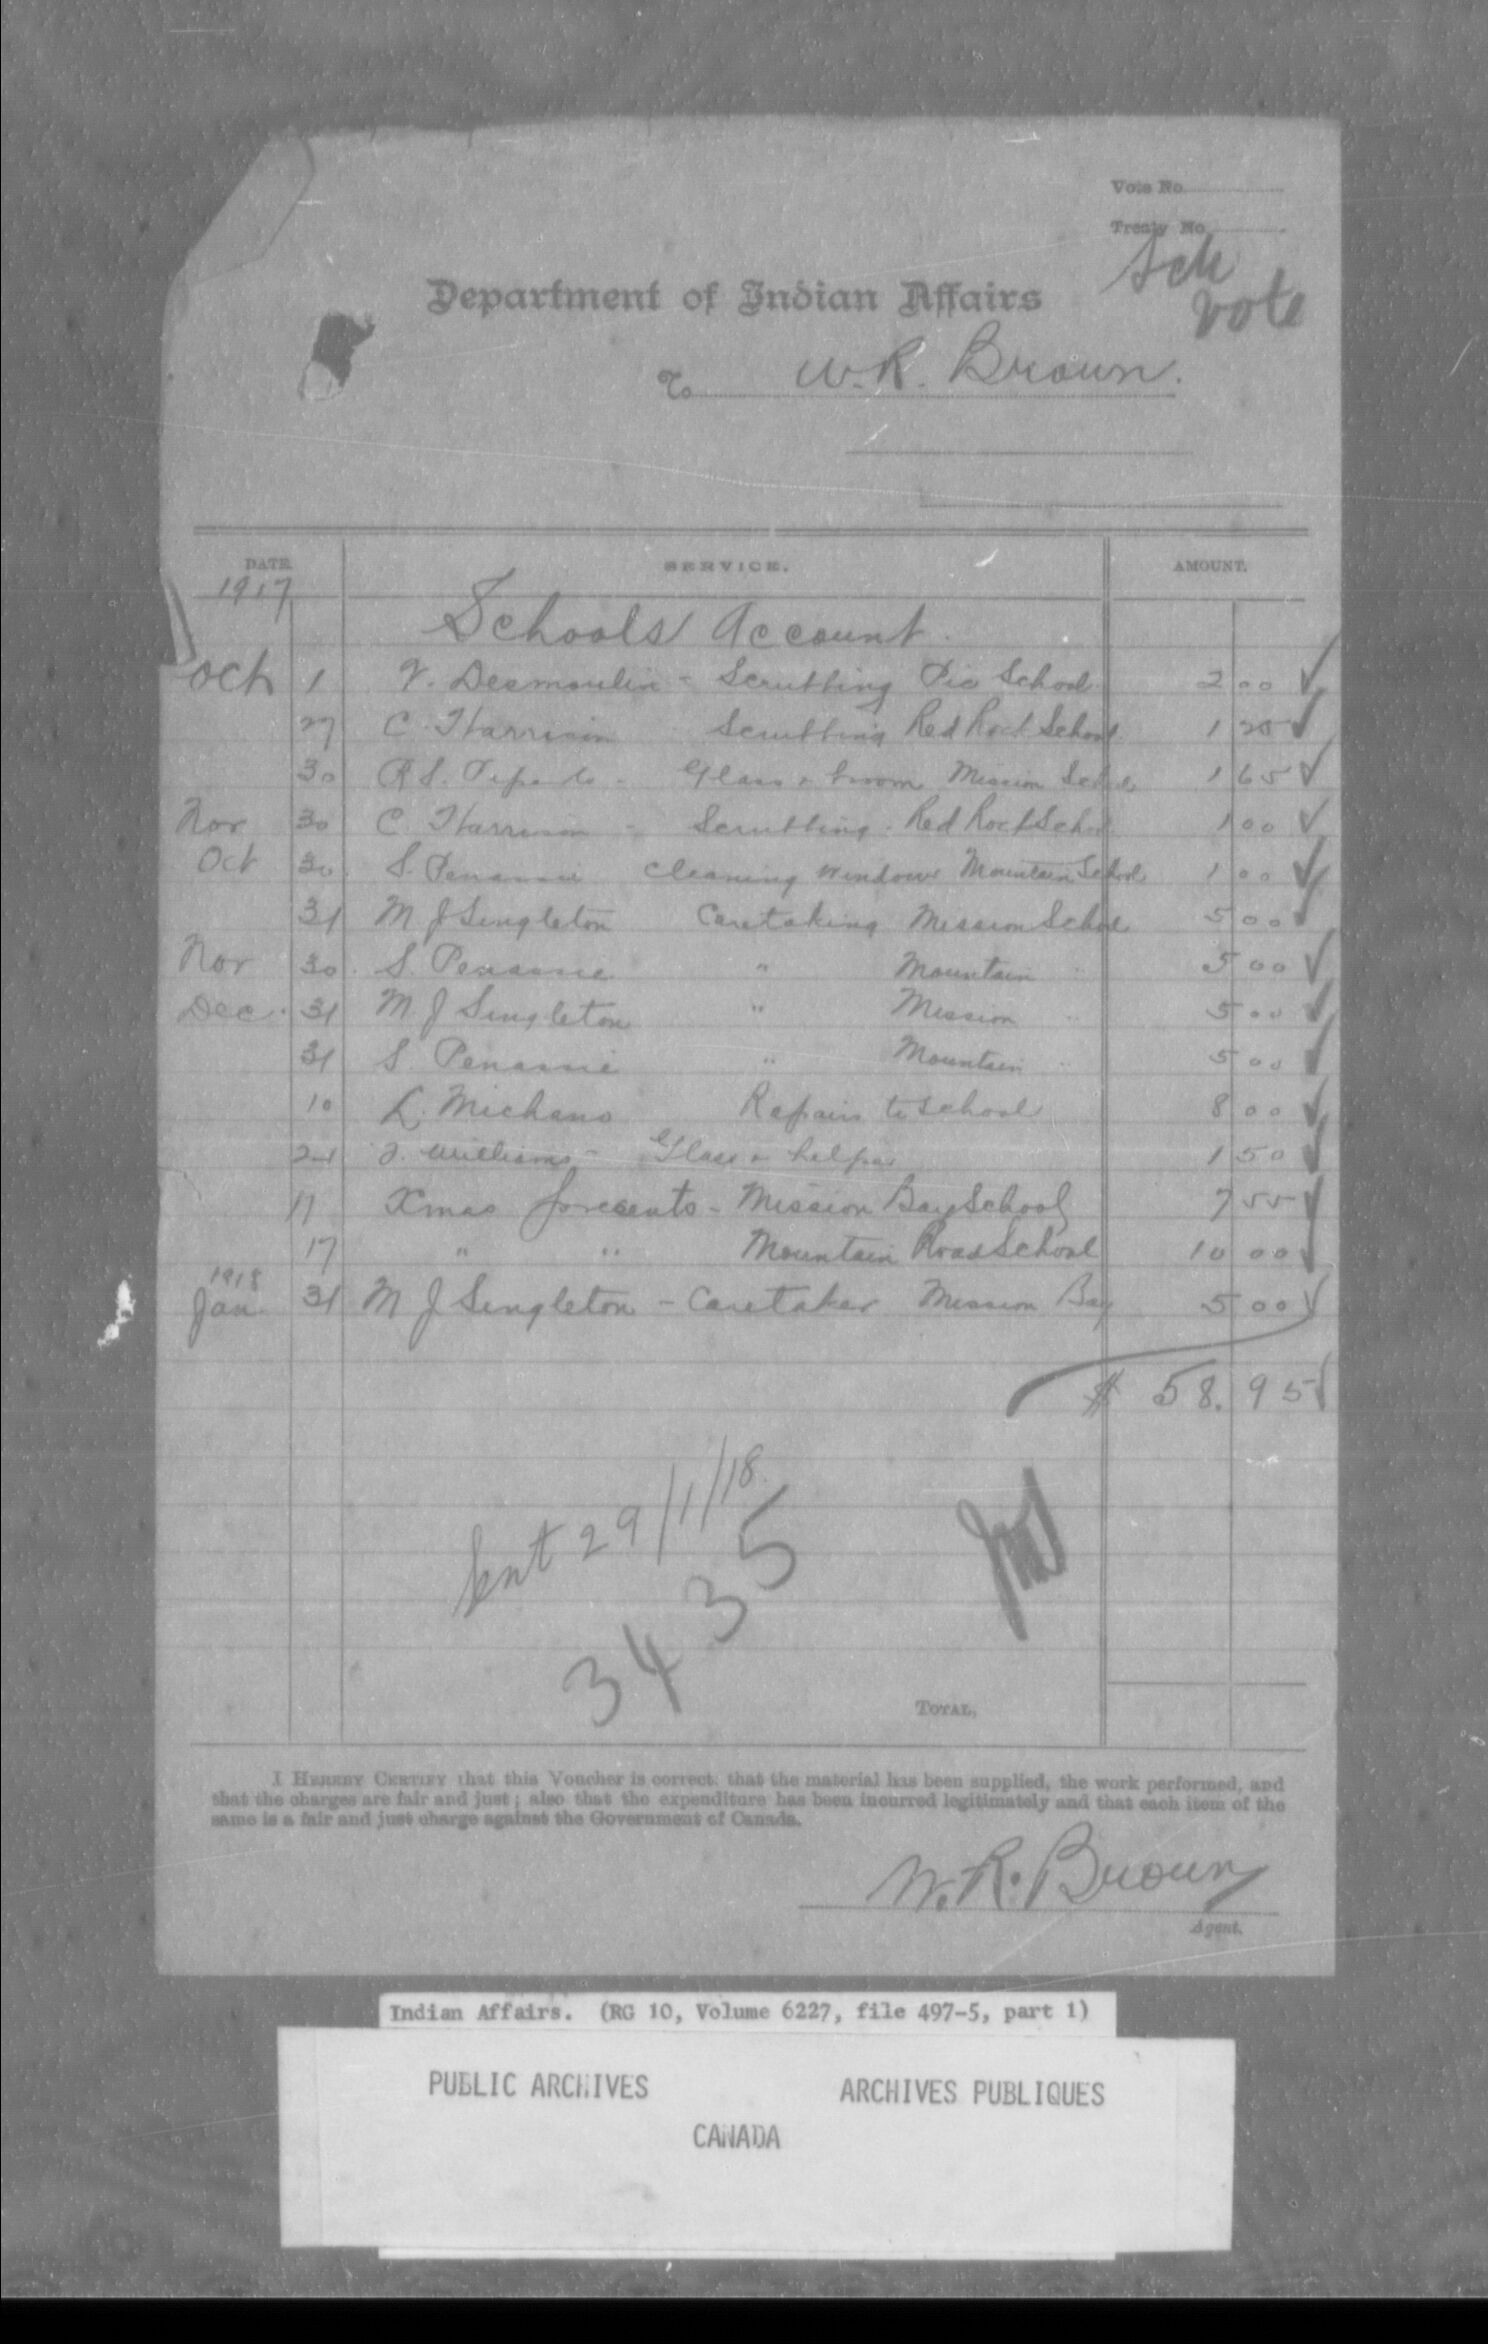 Vote No.
Treaty No.
Sch
vote
Department of Indian Affairs
To W. R. Brown.
DATE. SERVICE. AMOUNT.
1917
Schools Account.
Oct 1 V. Desmoulin - Scrubbing Pic School 2 00 ✓
27 C. Harrison Scrubbing Red Rock School 1 25 ✓
30 R S. - Glass & broom Mission School 1 65 ✓
Nov 30 C. Harrison - Scrubbing - Red Rock School 1 00 ✓
Oct 30 S. Penassie Cleaning windows Mountain School 1 00 ✓
31 M J Singleton Caretaking Mission School 5 00 ✓
Nov 30 S. Penassie " Mountain " 5 00 ✓
Dec. 31 M. J Singleton " Mission " 5 00 ✓
31 S. Penassie " Mountain " 5 00 ✓
10 L. Michano Repairs to school 8 00 ✓
24 J. Williams - Glass & helper 1 50 ✓
17 Xmas presents - Mission Bay School 7 55 ✓
17 " " Mountain Road School 10 00 ✓
1918
Jan. 31 M J Singleton - Caretaker Mission Bay 5 00 ✓
$ 58.95 ✓
Sent 29/1/18.
3435
TOTAL,
I HEREBY CERTIFY that this Voucher is correct, that the material has been supplied, the work performed, and
that the charges are fair and just; also that the expenditure has been incurred legitimately and that each item of the
same is a fair and just charge against the Government of Canada.
W. R. Brown
Agent.
Indian Affairs. (RG 10, Volume 6227, file 497-5, part 1)
PUBLIC ARCHIVES ARCHIVES PUBLIQUES
CANADA